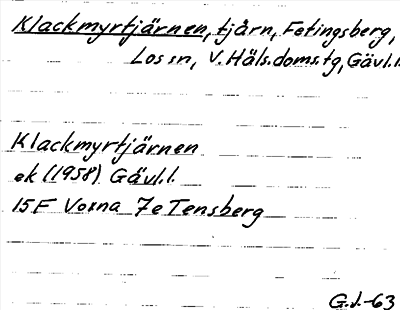 Klackmyrtjärnen, tjärn, Fetingsberg,
Los sn, V. Häls. doms. tg, Gävl.l.
Klackmyrtjärnen
ek (1958) Gävl.l.
15F Voxna 7e Tensberg
G.J.-63